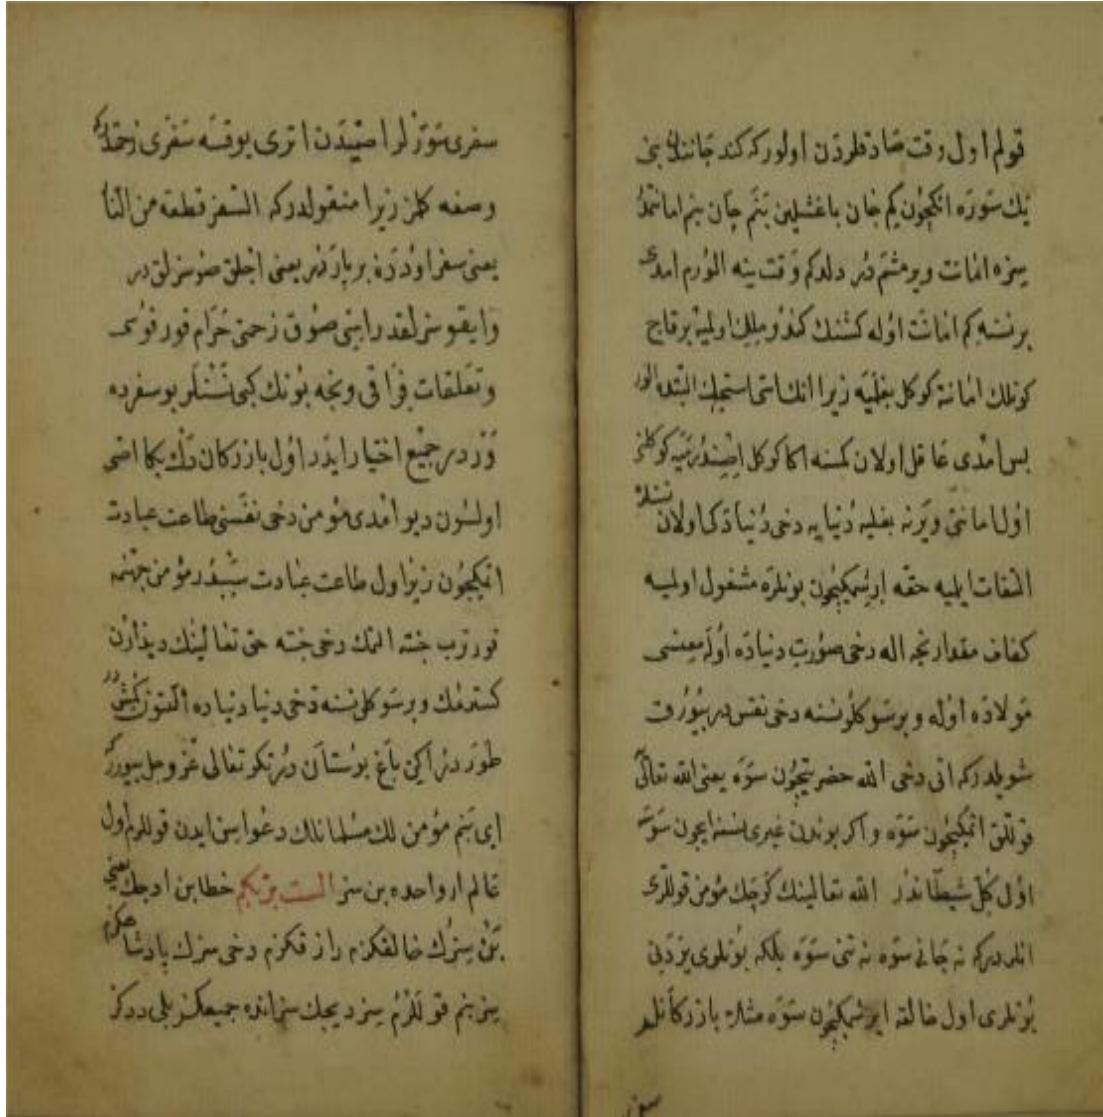 قولم اول وقت صادقلردن اولور كه كند جاننده بنى
يك سوره انكچون كم جان باغشلين بنم جان بنم امانتمدر
سزه امانت ويرمشم در دلدكم وقت ينه الورم امدى
برنسنه كم امانت اوله كشنك كندو ملكى اوليه برقاج
كونلك امانته كوكل بغليه زيرا انك اسى استيجك البته الور
بس امدى عاقل اولان كمسنه اكا كوكل
اول امانتى ويرنه بغليه دنيايه دخى دنياده كى اولان نسنلره
التفات ايليه حقه ايرشمكيچون بونلره مشغول اوليه
كفاف مقدارنجه اله دخى صورت دنياده اوله معنسى
مولاده اوله و برسوكلو نسنه دخى نفس در بيورت
شويلدر كه انى دخى الله حضرتيچون سوه يعنى الله تعالى
قوللق اتمكيچون سوه واكر بوندن غيرى نسنه ايچون سوسه
اول كل شيطاندر الله تعالينك كرچك مؤمن قوللرى
انلر در كه نه جانى سوه نه تنى سوه بلكه بونلرى يردنى
بونلرى اول خالقه ايرشمكيچون سوه مثلا بازركانلر
سفرى
سفرى سوزلر اصيدن اترى يوقسه سفرى زحمتدر كه
وصفه كلمز زيرا منقولدر كه السفر قطعه من النار
يعنى سفر اودده بر پاره در يعنى اجلق صوسزلق در
وايقوسزلقدر اسى صوق زحمتى حرام قورقوسى
وتعلقات فراقى ونجه بونك كبى نسنلر بو سفرده
واردر جميع اختيار ايدر اول بازركان تك بكا اصى
اولسون ديو امدى مؤمن دخى نفسنى طاعت عبادت
اتمكيچون زيرا اول طاعت عبادت سببدر مؤمن جهنمه
قورتوب جنته التمك دخى جنته حق تعالينك ديدارن
كسترمك وبرسوكلى نسنه دخى دنيا دنياده التون كمش در
طوردر اكين باغ بوستان در تكرى تعالى عز وجل بيورر كه
اى بنم مؤمن لك مسلمانلك دعواسن ايدن قوللرم اول
عالم ارواحده بن سزا الست بربكم خطابن ادجك يعنى
بن سزك خالقكزم رازقكزم دخى سزك پادشاهكزم
سز بنم قوللرم سز ديجك سز انده جميعكز بلى ددكز